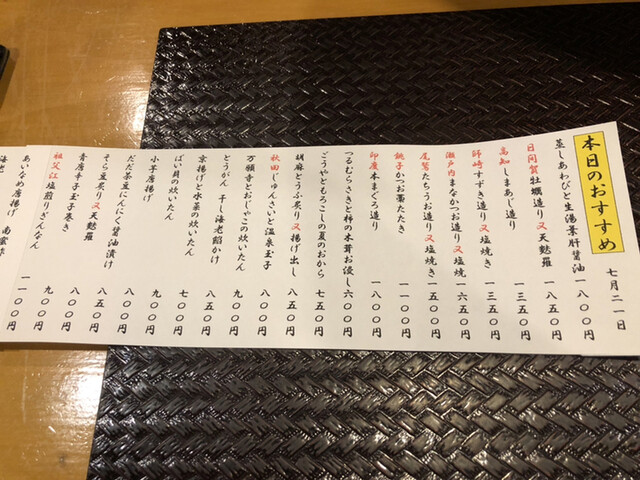 本日のおすすめ
七月二一日
蒸しあわびと生湯葉肝醤油 一八〇〇円
日間賀牡蠣造り又天麩羅 一八五〇円
高知しまあじ造り 一三五〇円
師崎すずき造り又塩焼き 一三五〇円
瀬戸内まながつお造り又塩焼 一六五〇円
尾鷲たちうお造り又塩焼き 一五〇〇円
銚子かつお藁たたき 一一〇〇円
印度本まぐろ造り 一八〇〇円
つるむらさきと柿の木茸お浸し 六〇〇円
ごうやともろこしの夏のおから 七五〇円
胡麻とうふ炙り又揚げ出し 八五〇円
秋田じゅんさいと温泉玉子 八〇〇円
万願寺とおじゃこの炊いたん 九〇〇円
とうがん 干し海老餡かけ 九〇〇円
京揚げと水菜の炊いたん 八五〇円
ばい貝の炊いたん 七〇〇円
小芋唐揚げ 九〇〇円
だだ茶豆にんにく醤油漬け 八〇〇円
そら豆炙り又天麩羅 八五〇円
青唐辛子玉子巻き 八〇〇円
祖父江塩煎りぎんなん 九〇〇円
あいなめ唐揚げ 一一〇〇円
海老